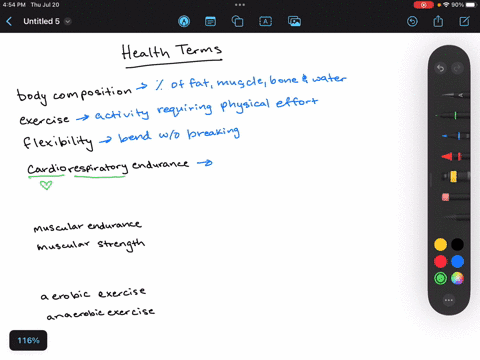 4:54 PM Thu Jul 20
90%
Untitled 5
Health Terms
body composition → % of fat, muscle, bone & water
exercise → activity requiring physical effort
flexibility → bend w/o breaking
Cardiorespiratory endurance →
muscular endurance
muscular strength
aerobic exercise
anaerobic exercise
116%